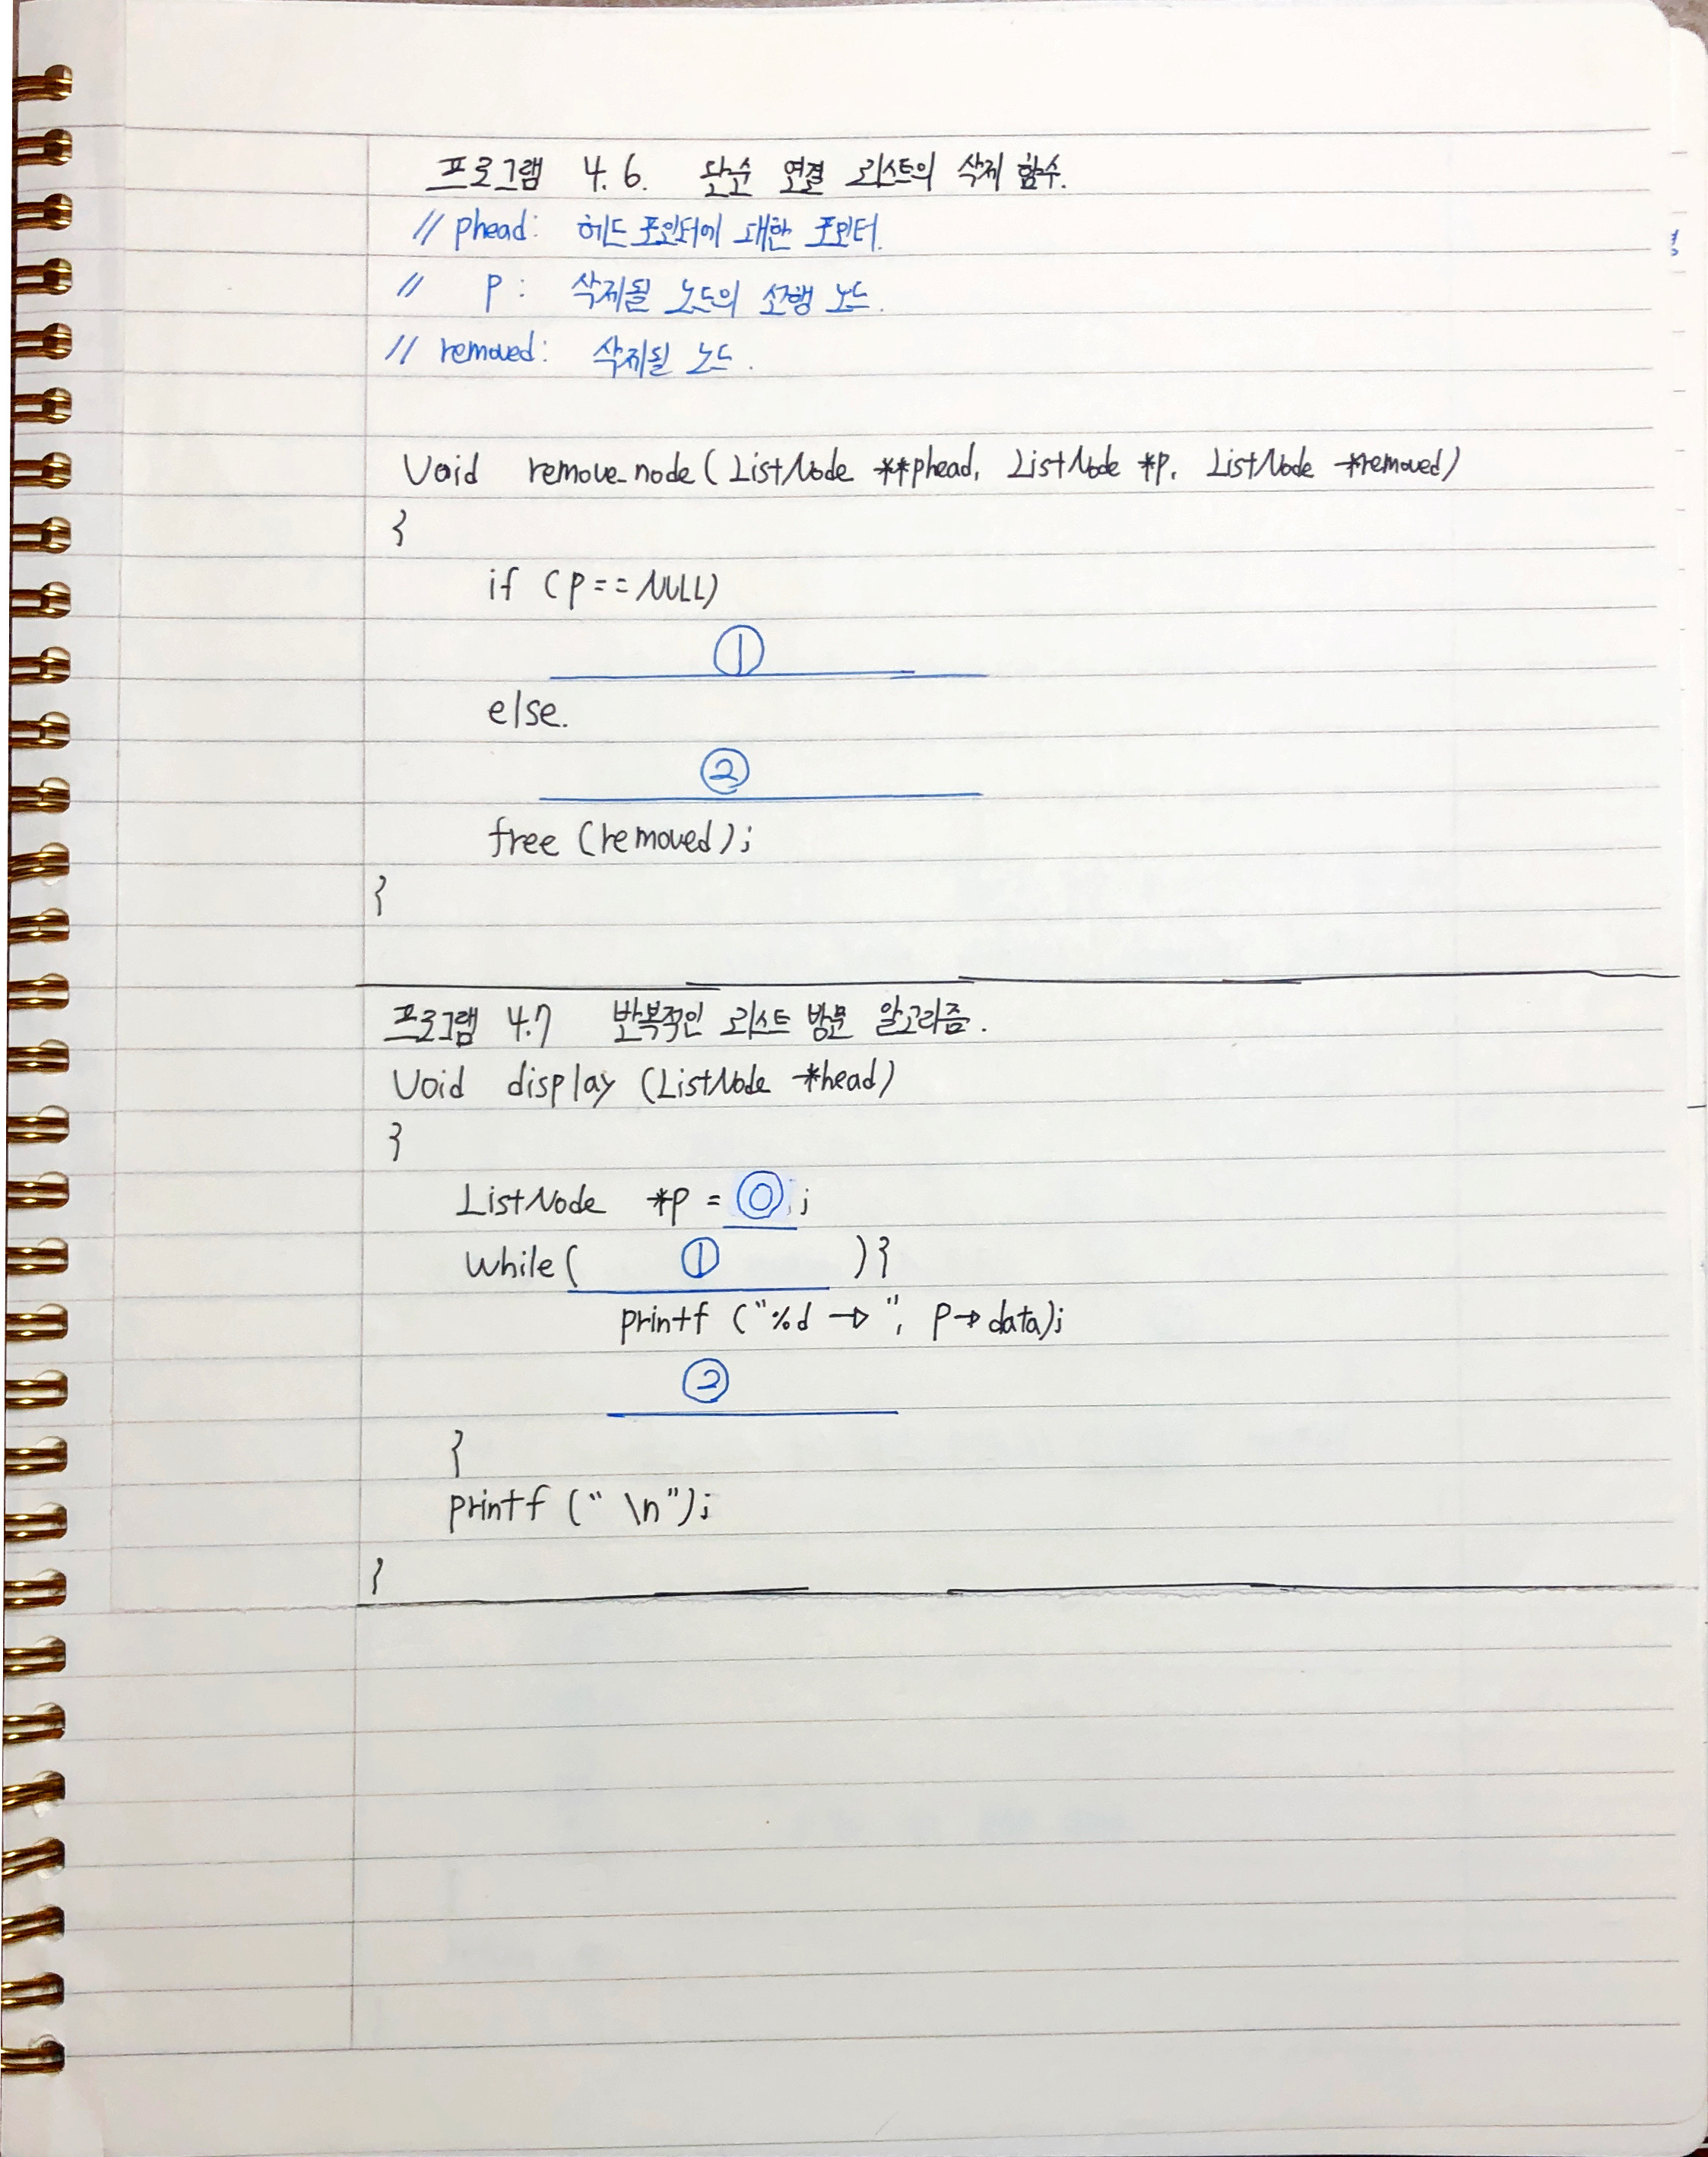 프로그램 4.6. 단순 연결 리스트의 삭제 함수.
// phead: 헤드 포인터에 대한 포인터.
// p: 삭제될 노드의 선행 노드.
// removed: 삭제될 노드.
Void remove_node(ListNode **phead, ListNode *p, ListNode *removed)
{
if (p==NULL)
①
else.
②
free (removed);
}
프로그램 4.7 반복적인 리스트 방문 알고리즘.
Void display (ListNode *head)
{
ListNode *p = ⓪;
while( ① ){
printf ("%d →", p→data);
②
}
printf (" \n");
}